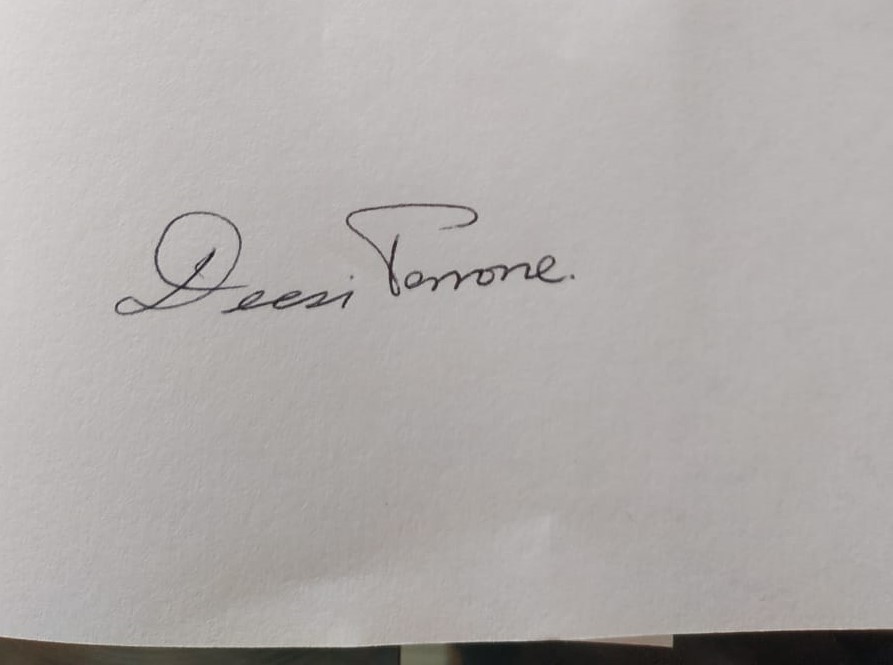 Deesi Perrone.